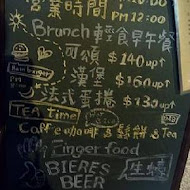 營業時間
PM 12:00
Brunch 輕食早午餐
可頌 $140 up↑
Hamburger
漢堡 $160 up↑
法式蛋捲 $130 up↑
TEA time
Caffe 咖啡 & 鬆餅 & Tea
Finger food
BIERES
BEER
生蠔